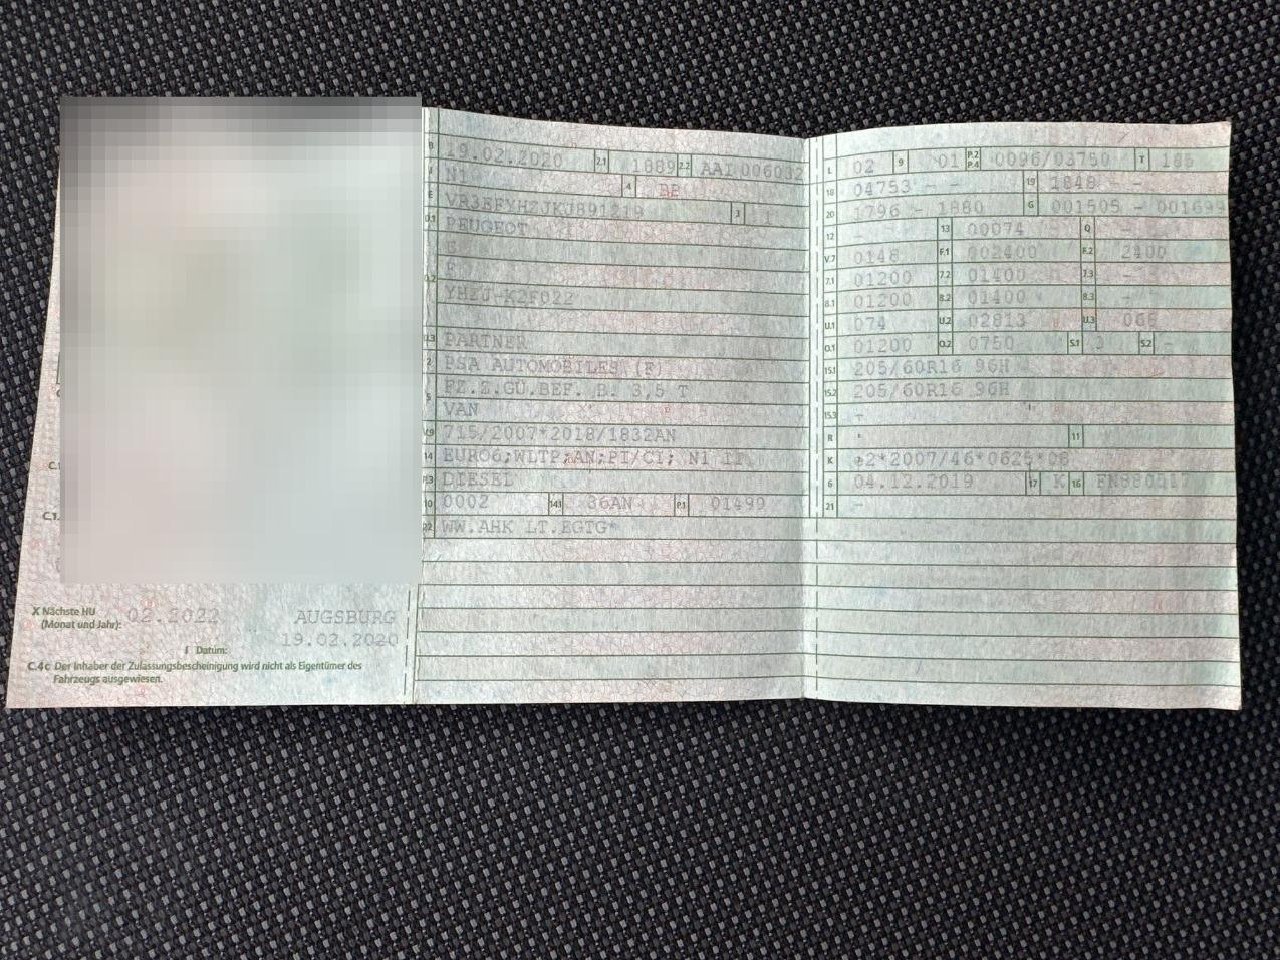 X Nächste HU
(Monat und Jahr): 02.2022 AUGSBURG
I Datum: 19.02.2020
C.4c Der Inhaber der Zulassungsbescheinigung wird nicht als Eigentümer des
Fahrzeugs ausgewiesen.
B 19.02.2020 2.1 1889 2.2 AAI
J N1 4 BB
E 3 1
D.1 PEUGEOT
E
F
YHZJ-K2F022
D.3 PARTNER
2 PSA AUTOMOBILES (F)
5 FZ.Z.GÜ.BEF. B. 3,5 T
VAN
V.9 715/2007*2018/1832AN
14 EURO6;WLTP;AN;PI/CI; N1 II
P.3 DIESEL
10 0002 14.1 36AN P.1 01499
22 WW.AHK LT.EGTG*
L 02 9 01 P.2 P.4 0096/03750 T 185
18 04753 - - 19 1848 - -
20 1796 - 1880 G 001505 - 001699
12 - 13 00074 Q -
V.7 0148 F.1 002400 F.2 2400
7.1 01200 7.2 01400 7.3 -
8.1 01200 8.2 01400 8.3 -
U.1 074 U.2 02813 U.3 068
O.1 01200 O.2 0750 S.1 3 S.2 -
15.1 205/60R16 96H
15.2 205/60R16 96H
15.3 -
R - 11
K e2*2007/46*0625*08
6 04.12.2019 17 K 16
21 -